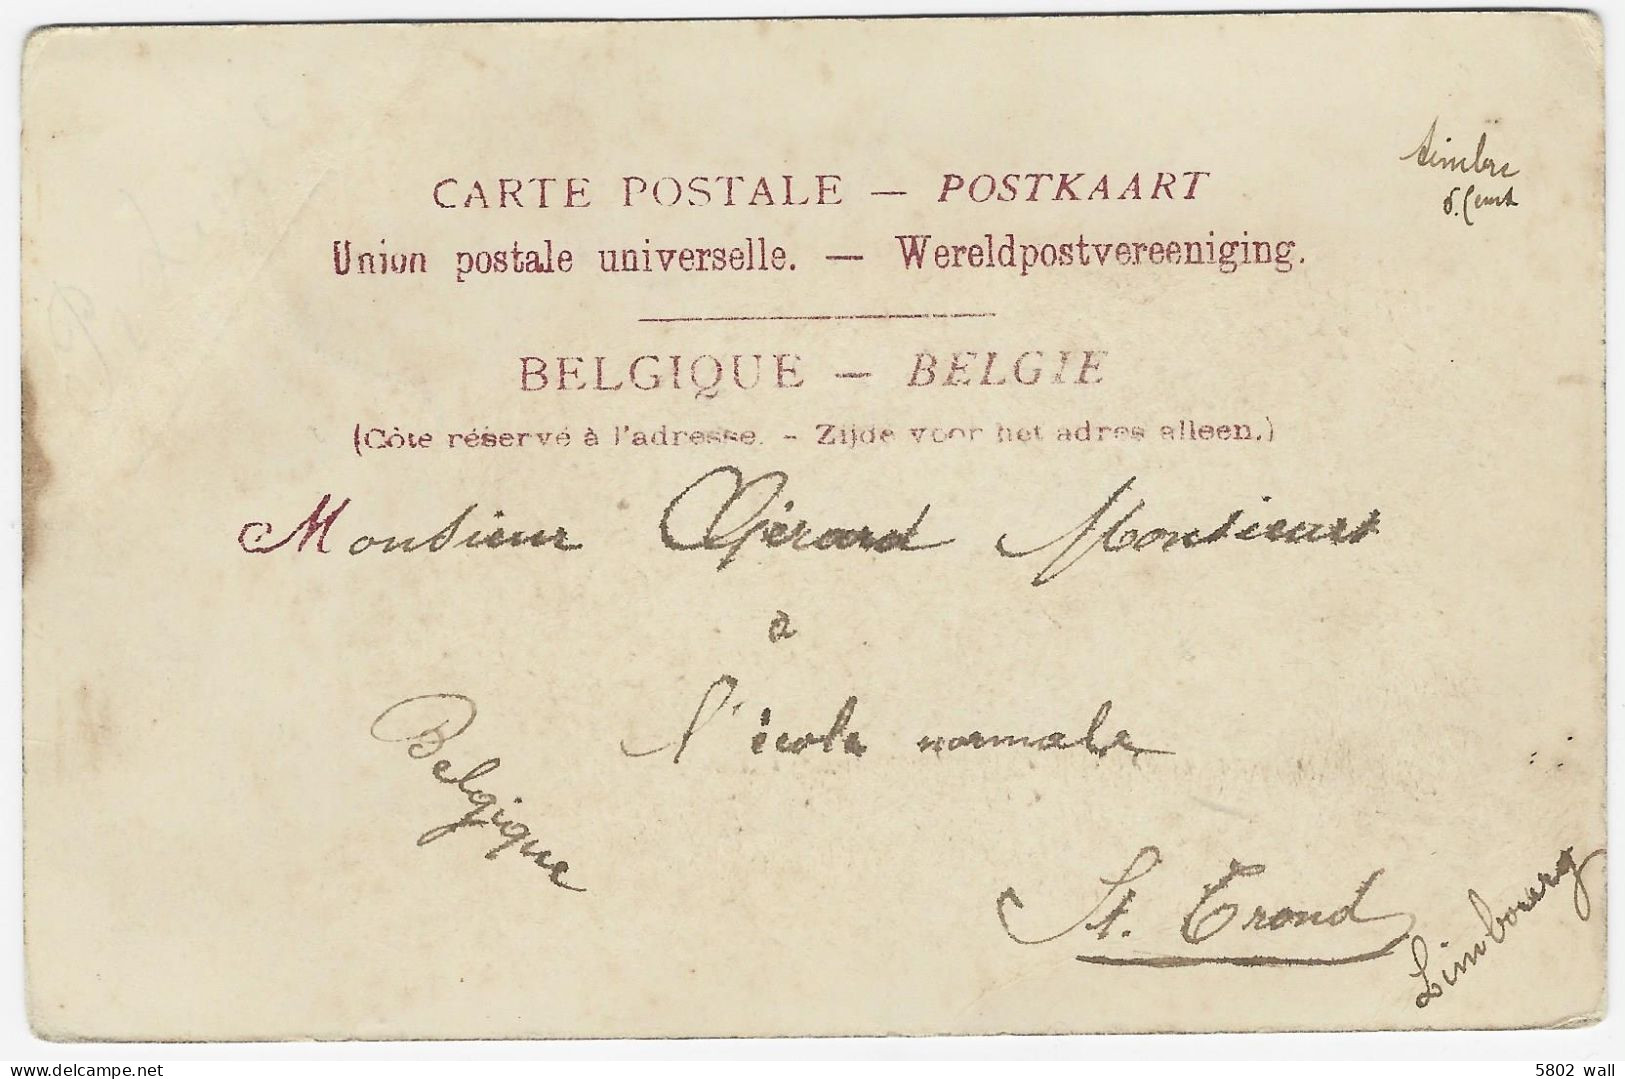 timbre
5. Cent
CARTE POSTALE — POSTKAART
Union postale universelle. — Wereldpostvereeniging.
BELGIQUE — BELGIE
(Côte réservé à l'adresse. - Zijde voor het adres alleen.)
Monsieur Gérard
à
l'école normale
Belgique
St. Trond
Limbourg
5802 wall